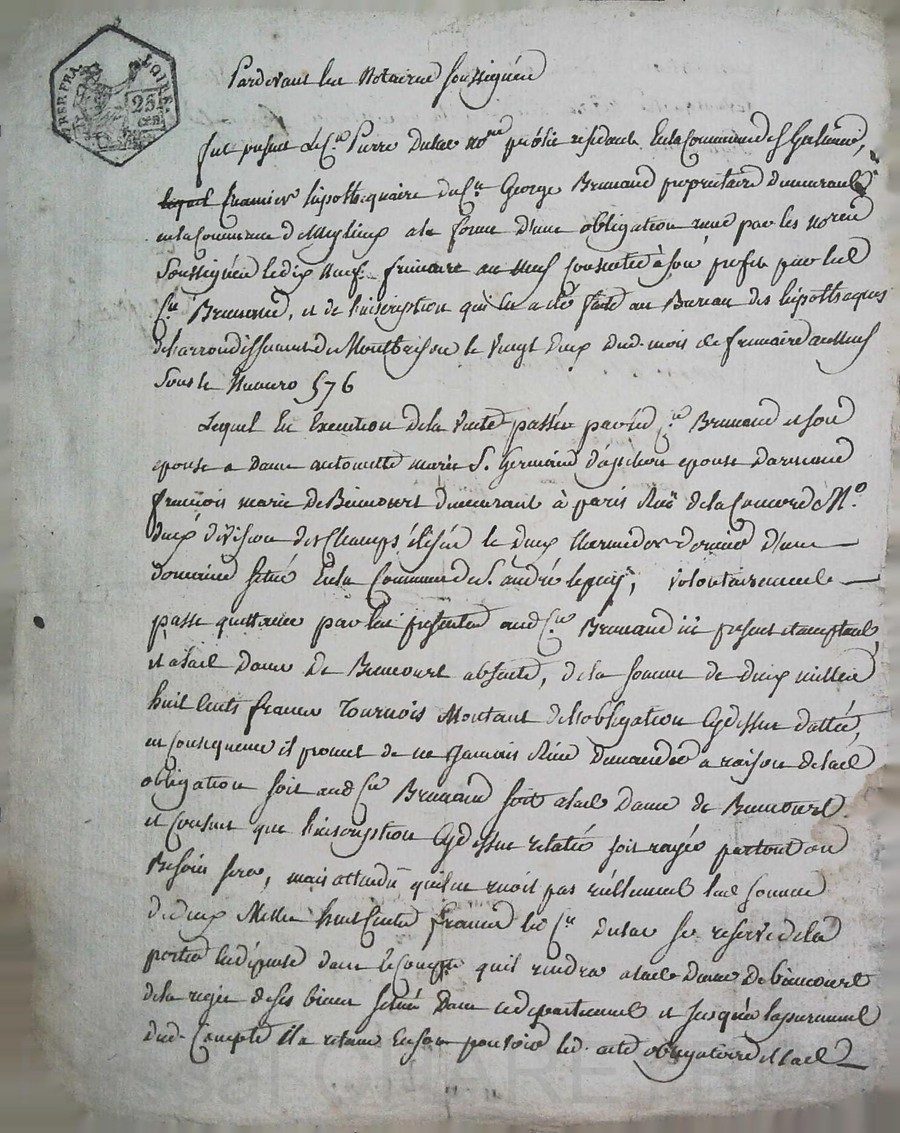 REP. FRA. LOIRE.
25
CEN
Pardevant les Notaires soussignés
fut présent le Cen Pierre Dulac nore public résidant En la Commune de St Galmier,
lequel Créancier hipothéquaire du Cen George Brunand propriétaire demeurant
en la Commune de a la forme d'une obligation reçue par les nores
Soussignés le dix neuf frimaire an neuf consentie à son profit par led
Cen Brunand, et de l'inscription qui en a été faite au Bureau des hipothèques
de l'arrondissement de Montbrison le vingt deux dud. mois de frimaire an neuf
Sous le Numero 576
Lequel En Execution de la vente passée par led Cen Brunand et son
epouse a Dame antoinette marie St. Germaine d'apchon epouse d'armand
françois marie De Biencourt demeurant à paris Rue de la Concorde No.
deux division des Champs élisés le deux dernier d'un
domaine situé En la Commune de St. andré le puy, volontairement
passe quittance par les présentes aud Cen Brunand ici présent et acceptant,
et a lad Dame De Biencourt absente, de la somme de deux milles
huit Cents francs Tournois Montant de l'obligation Cydessus dattée,
en Conséquence il promet de ne jamais Rien Demander a raison de lad
obligation soit aud Cen Brunand soit a lad Dame de Biencourt
et consent que l'inscription Cydessus relatée soit rayée partout ou
Besoin sera, mais attendu qu'il ne reçoit pas réellement lad somme
de deux Mille huit Cents francs led Cen Dulac se reserve de la
porter en dépense dans le Compte qu'il rendra a lad Dame De biencourt
de la regie de ses biens situés Dans ce département et jusqu'a l'apurement
dud. Compte il a retenu En son pouvoir led. acte obligatoire et lad